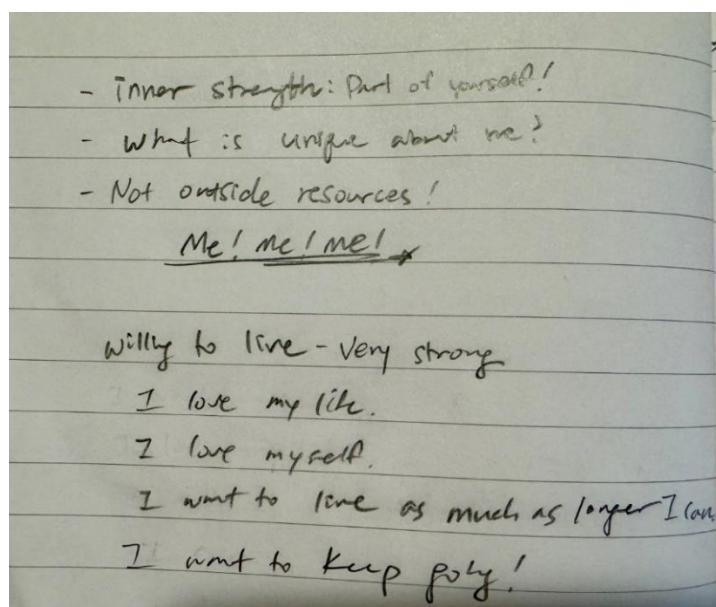 - inner strength: Part of yourself!
- What is unique about me?
- Not outside resources!
Me! me! me!
willing to live - very strong
I love my life.
I love myself.
I want to live as much as longer I can.
I want to keep going!